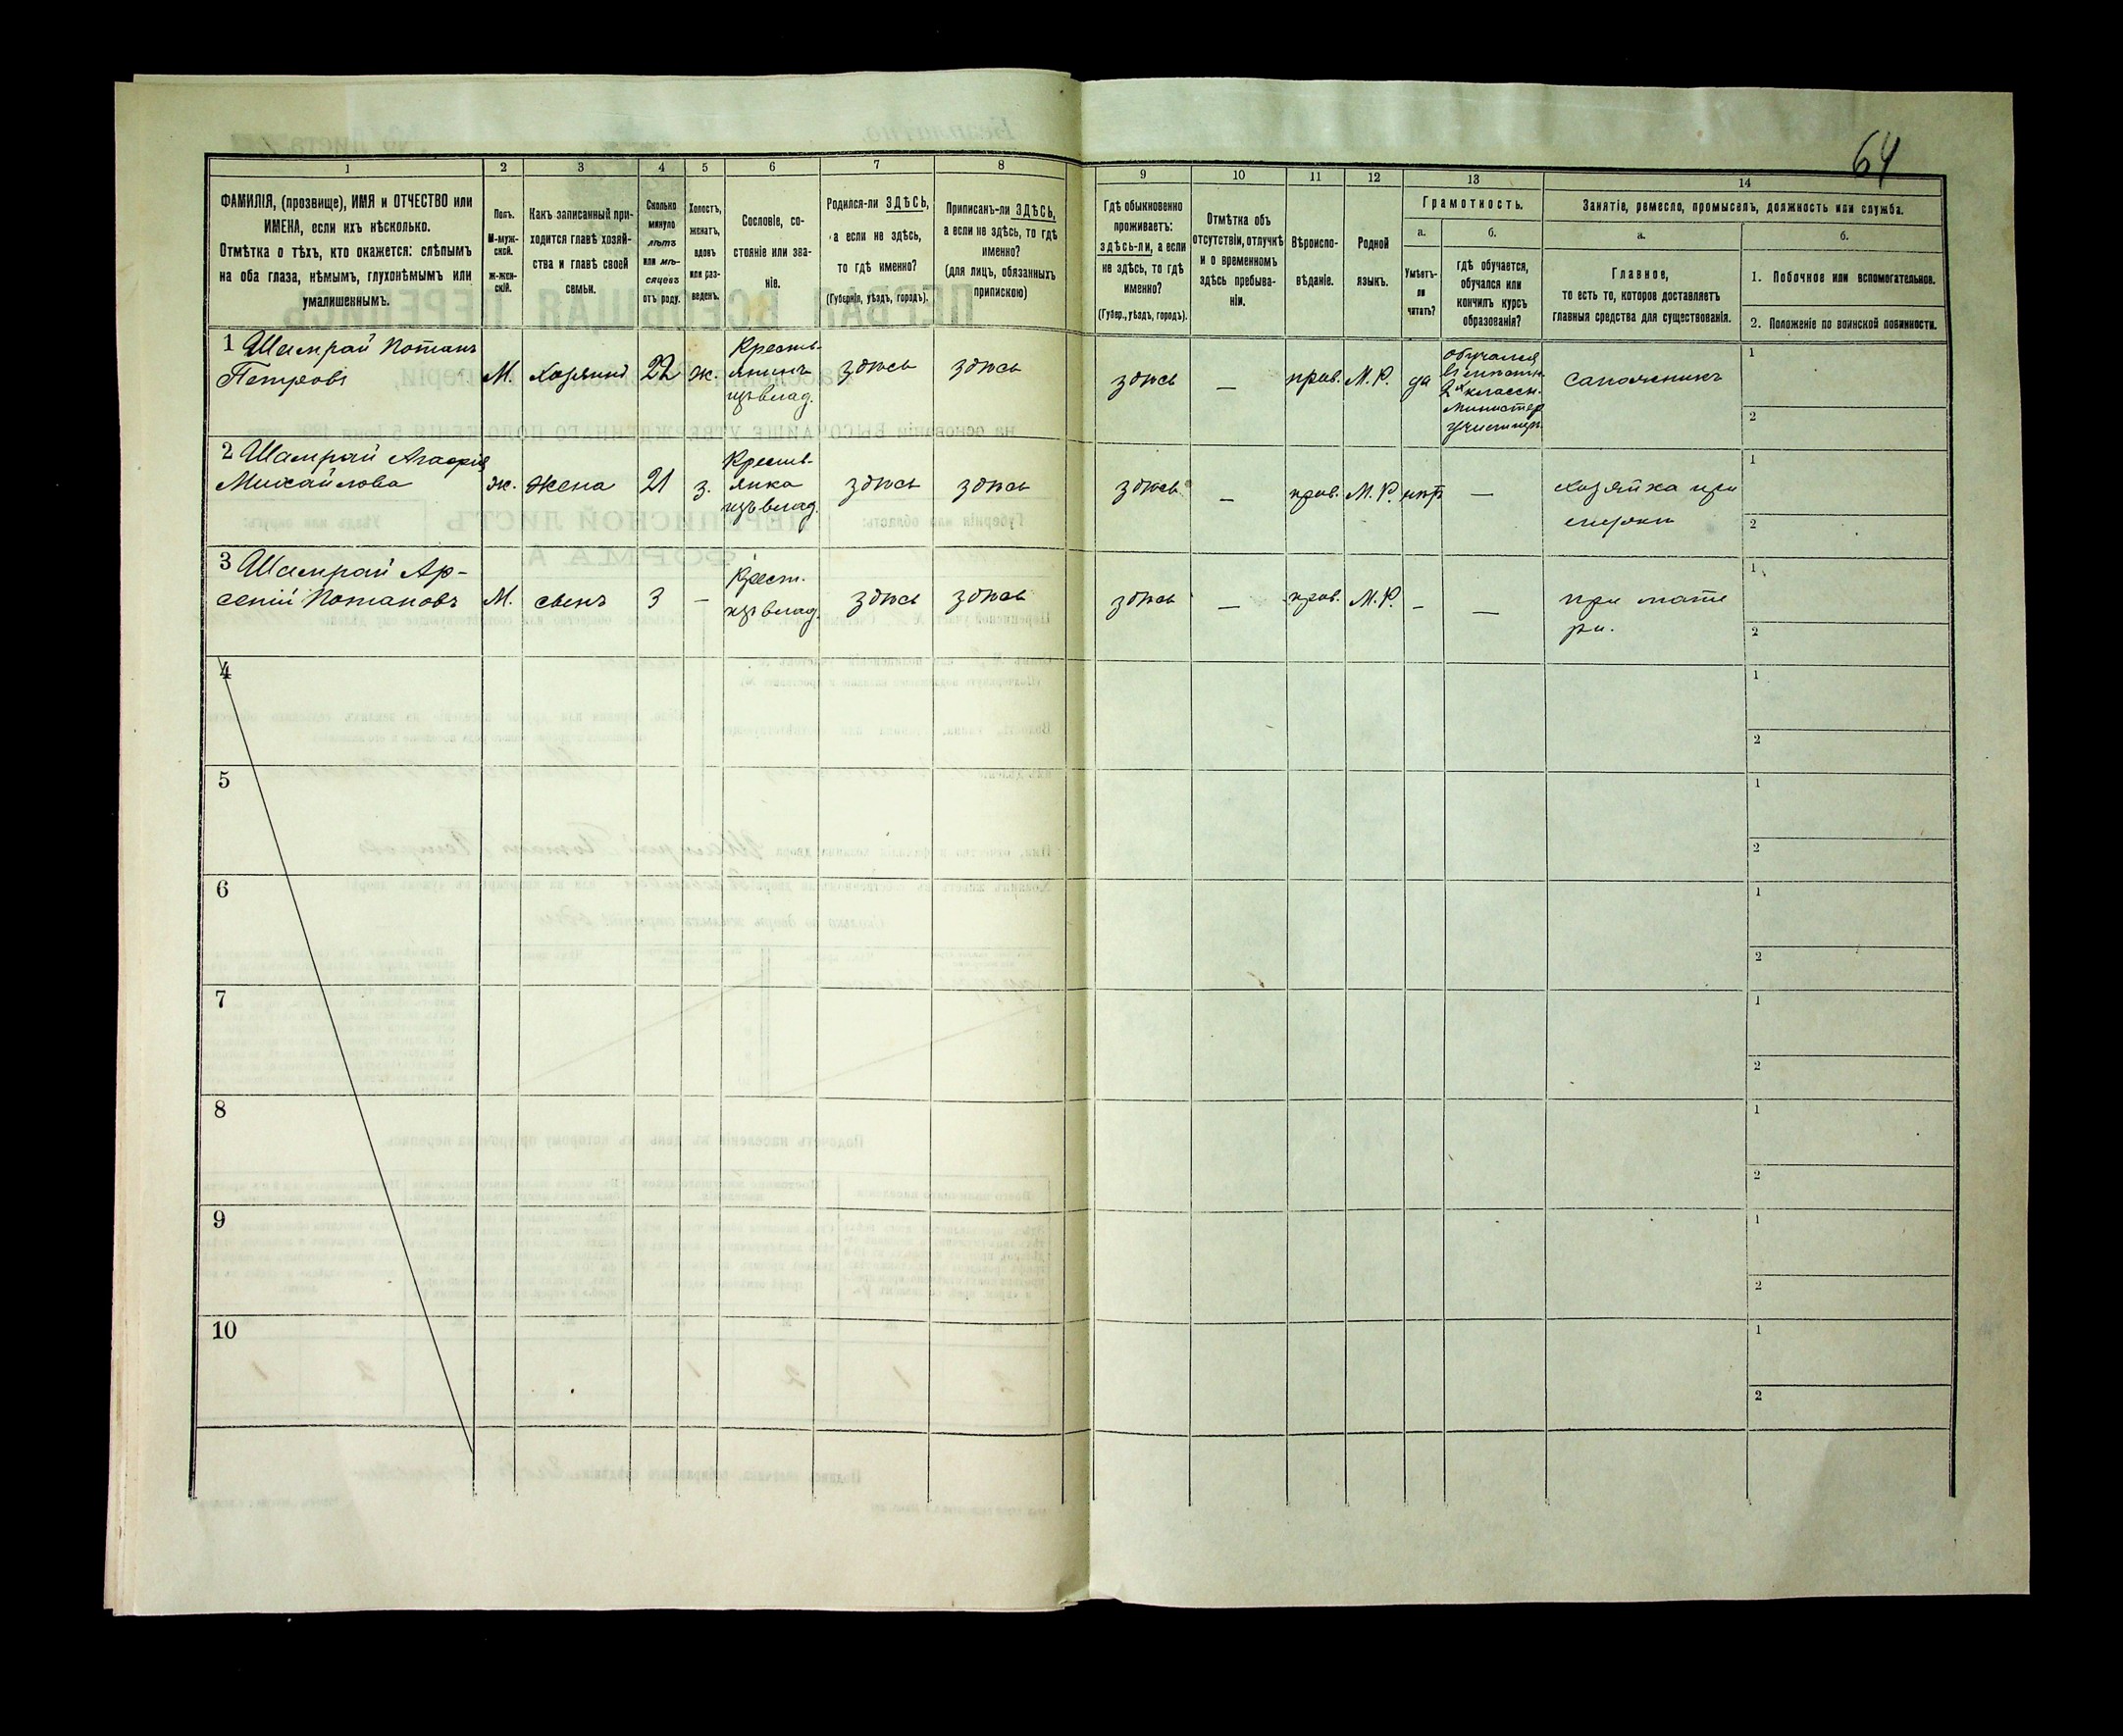 64
1 2 3 4 5 6 7 8 9 10 11 12 13 14
ФАМИЛІЯ, (прозвище), ИМЯ и ОТЧЕСТВО или
ИМЕНА, если ихъ нѣсколько.
Отмѣтка о тѣхъ, кто окажется: слѣпымъ
на оба глаза, нѣмымъ, глухонѣмымъ или
умалишеннымъ.
Полъ.
М-муж-
ской.
ж-жен-
скій.
Какъ записанный при-
ходится главѣ хозяй-
ства и главѣ своей
семьи.
Сколько
минуло
лѣтъ
или мѣ-
сяцевъ
отъ роду.
Холостъ,
женатъ,
вдовъ
или раз-
веденъ.
Сословіе, со-
стояніе или зва-
ніе.
Родился-ли ЗДѢСЬ,
а если не здѣсь,
то гдѣ именно?
(Губернія, уѣздъ, городъ).
Приписанъ-ли ЗДѢСЬ,
а если не здѣсь, то гдѣ
именно?
(для лицъ, обязанныхъ
припискою)
Гдѣ обыкновенно
проживаетъ:
здѣсь-ли, а если
не здѣсь, то гдѣ
именно?
(Губер., уѣздъ, городъ).
Отмѣтка объ
отсутствіи, отлучкѣ
и о временномъ
здѣсь пребыва-
ніи.
Вѣроиспо-
вѣданіе.
Родной
языкъ.
Грамотность.
а.
Умѣетъ-
ли
читать?
б.
гдѣ обучается,
обучался или
кончилъ курсъ
образованія?
Занятіе, ремесло, промыселъ, должность или служба.
а.
Главное,
то есть то, которое доставляетъ
главныя средства для существованія.
б.
1. Побочное или вспомогательное.
2. Положеніе по воинской повинности.
1 Шамрай Потапъ
Петровъ
М.
Хозяинъ
22
ж.
Кресть-
янинъ
изъ влад.
здѣсь
здѣсь
здѣсь
—
прав.
М. Р.
да
обучался
2х классн.
Министер
училищѣ
сапожникъ
1
2
2 Шамрай Агафія
Михайлова
ж.
жена
21
з.
Кресть-
янка
изъ влад.
здѣсь
здѣсь
здѣсь
—
прав.
М. Р.
нѣтъ
—
хозяйка при
1
2
3 Шамрай Ар-
сеній Потаповъ
М.
сынъ
3
—
Крест.
изъ влад.
здѣсь
здѣсь
здѣсь
—
прав.
М. Р.
—
—
при мате
ри.
1
2
4
1
2
5
1
2
6
1
2
7
1
2
8
1
2
9
1
2
10
1
2